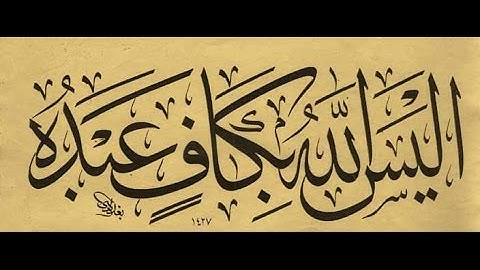 اَلَيْسَ اللّٰهُ بِكَافٍ عَبْدَهُ
١٤٢٧